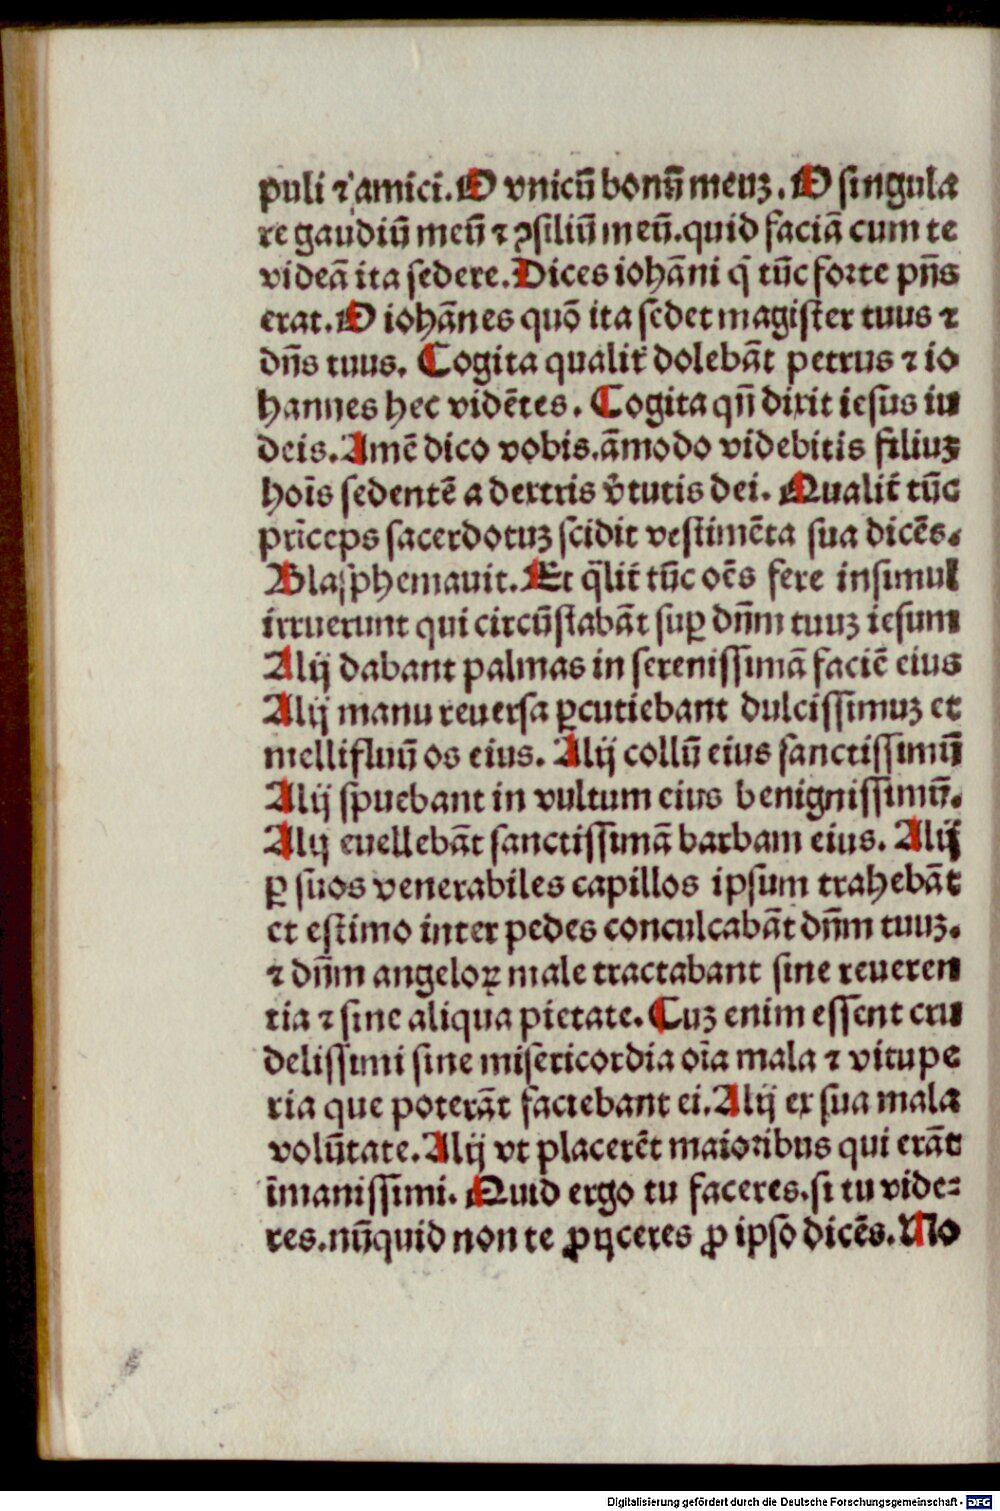 puli ⁊ amici. O vnicū bonū meuꝫ. O singula
re gaudiū meū ⁊ ꝯsiliū meū. quid faciā cum te
videā ita sedere. Dices iohāni q̄ tūc forte pn̄s
erat. O iohānes quō ita sedet magister tuus ⁊
dn̄s tuus. Cogita qualit̄ dolebāt petrus ⁊ io
hannes hec vidētes. Cogita qn̄ dixit iesus iu
deis. Amē dico vobis. āmodo videbitis filiuꝫ
hoīs sedentē a dextris v̄tutis dei. Qualit̄ tūc
prīceps sacerdotuꝫ scidit vestimēta sua dicēs.
Blasphemauit. Et q̄lit̄ tūc oēs fere insimul
irruerunt qui circūstabāt suꝑ dn̄m tuuꝫ iesum
Alij dabant palmas in serenissimā faciē eius
Alij manu reuersa ꝑcutiebant dulcissimuꝫ et
mellifluū os eius. Alij collū eius sanctissimū
Alij spuebant in vultum eius benignissimū.
Alij euellebāt sanctissimā barbam eius. Alij
ꝑ suos venerabiles capillos ipsum trahebāt
et estimo inter pedes conculcabāt dn̄m tuuꝫ.
⁊ dn̄m angeloꝝ male tractabant sine reueren
tia ⁊ sine aliqua pietate. Cuꝫ enim essent cru
delissimi sine misericordia oīa mala ⁊ vitupe
ria que poterāt faciebant ei. Alij ex sua mala
volūtate. Alij vt placerēt maioribus qui erāt
īmanissimi. Quid ergo tu faceres. si tu vide⸗
res. nūquid non te ꝓijceres ꝓ ipso dicēs. No
Digitalisierung gefördert durch die Deutsche Forschungsgemeinschaft - DFG